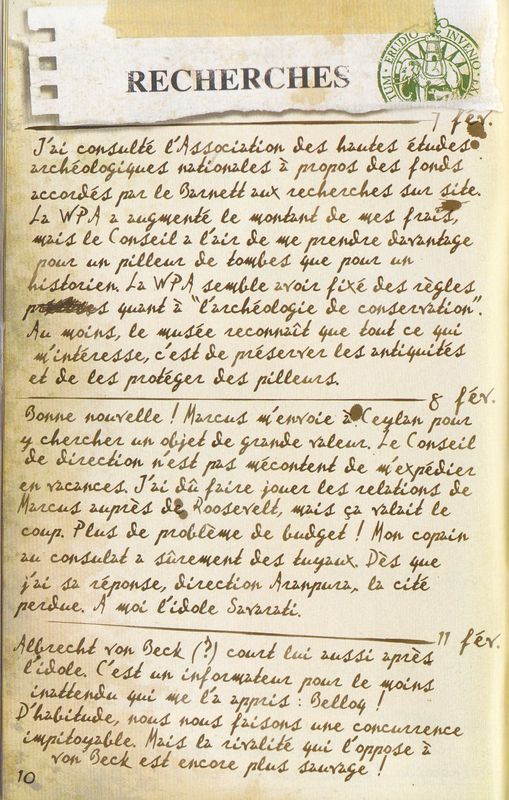 RECHERCHES
ERUDIO INVENIO
7 fév.
J'ai consulté l'Association des hautes études
archéologiques nationales à propos des fonds
accordés par le Barnett aux recherches sur site.
La WPA a augmenté le montant de mes frais,
mais le Conseil a l'air de me prendre davantage
pour un pilleur de tombes que pour un
historien. La WPA semble avoir fixé des règles
quant à "l'archéologie de conservation".
Au moins, le musée reconnaît que tout ce qui
m'intéresse, c'est de préserver les antiquités
et de les protéger des pilleurs.
8 fév.
Bonne nouvelle ! Marcus m'envoie à Ceylan pour
y chercher un objet de grande valeur. Le Conseil
de direction n'est pas mécontent de m'expédier
en vacances. J'ai dû faire jouer les relations de
Marcus auprès de Roosevelt, mais ça valait le
coup. Plus de problème de budget ! Mon copain
au consulat a sûrement des tuyaux. Dès que
j'ai sa réponse, direction Aranpura, la cité
perdue. À moi l'idole Savarati.
11 fév.
Albrecht von Beck (?) court lui aussi après
l'idole. C'est un informateur pour le moins
inattendu qui me l'a appris : Belloq !
D'habitude, nous nous faisons une concurrence
impitoyable. Mais la rivalité qui l'oppose à
von Beck est encore plus sauvage !
10